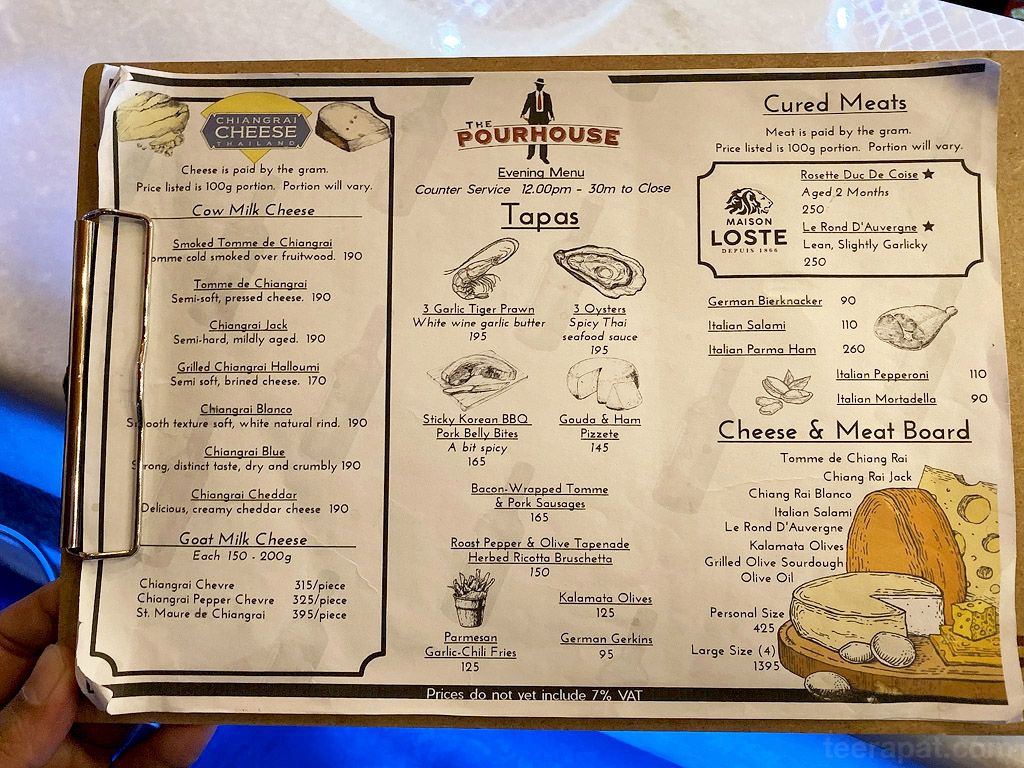 CHIANGRAI
CHEESE
THAILAND
Cheese is paid by the gram.
Price listed is 100g portion. Portion will vary.
Cow Milk Cheese
Smoked Tomme de Chiangrai
omme cold smoked over fruitwood. 190
Tomme de Chiangrai
Semi-soft, pressed cheese. 190
Chiangrai Jack
Semi-hard, mildly aged. 190
Grilled Chiangrai Halloumi
Semi soft, brined cheese. 170
Chiangrai Blanco
Smooth texture soft, white natural rind. 190
Chiangrai Blue
Strong, distinct taste, dry and crumbly 190
Chiangrai Cheddar
Delicious, creamy cheddar cheese 190
Goat Milk Cheese
Each 150 - 200g
Chiangrai Chevre 315/piece
Chiangrai Pepper Chevre 325/piece
St. Maure de Chiangrai 395/piece
THE
POURHOUSE
Evening Menu
Counter Service 12.00pm - 30m to Close
Tapas
3 Garlic Tiger Prawn
White wine garlic butter
195
3 Oysters
Spicy Thai
seafood sauce
195
Sticky Korean BBQ
Pork Belly Bites
A bit spicy
165
Gouda & Ham
Pizzete
145
Bacon-Wrapped Tomme
& Pork Sausages
165
Roast Pepper & Olive Tapenade
Herbed Ricotta Bruschetta
150
Parmesan
Garlic-Chili Fries
125
Kalamata Olives
125
German Gerkins
95
Cured Meats
Meat is paid by the gram.
Price listed is 100g portion. Portion will vary.
MAISON
LOSTE
DEPUIS 1866
Rosette Duc De Coise ★
Aged 2 Months
250
Le Rond D'Auvergne ★
Lean, Slightly Garlicky
250
German Bierknacker 90
Italian Salami 110
Italian Parma Ham 260
Italian Pepperoni 110
Italian Mortadella 90
Cheese & Meat Board
Tomme de Chiang Rai
Chiang Rai Jack
Chiang Rai Blanco
Italian Salami
Le Rond D'Auvergne
Kalamata Olives
Grilled Olive Sourdough
Olive Oil
Personal Size
425
Large Size (4)
1395
Prices do not yet include 7% VAT
teerapat.com